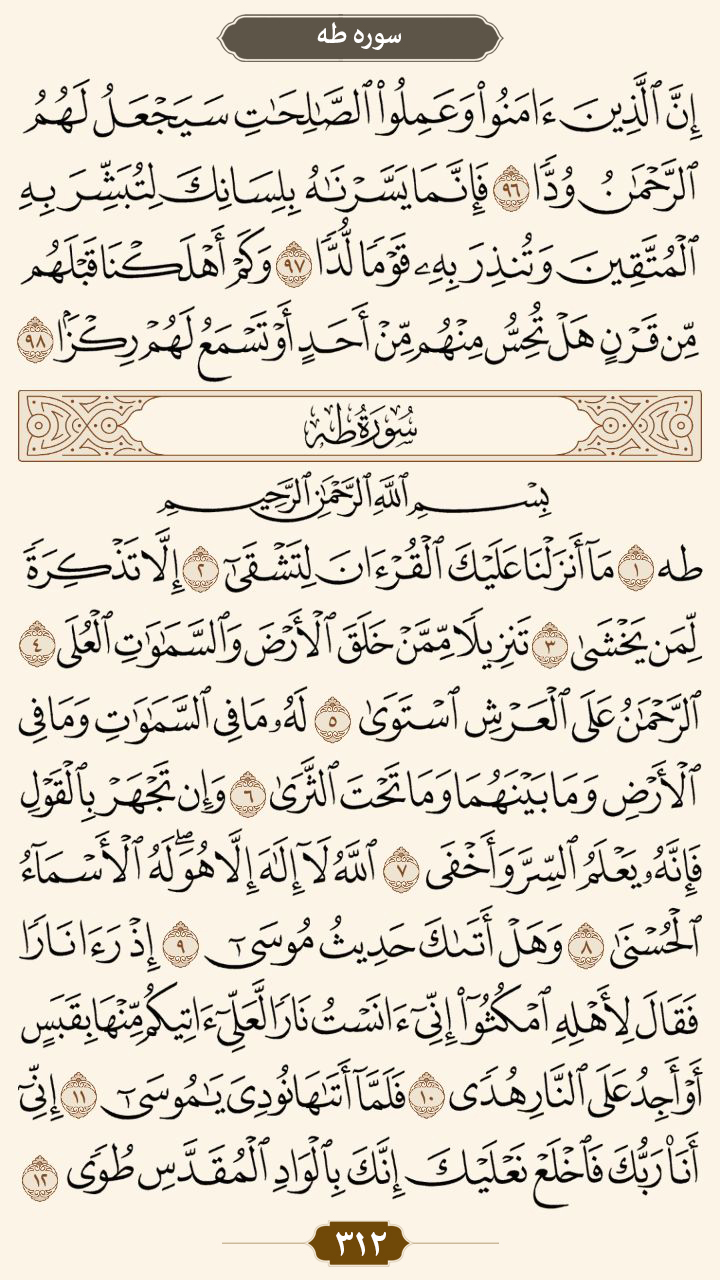 سوره طه
إِنَّ ٱلَّذِينَ ءَامَنُوا۟ وَعَمِلُوا۟ ٱلصَّٰلِحَٰتِ سَيَجْعَلُ لَهُمُ
ٱلرَّحْمَٰنُ وُدًّا ٩٦ فَإِنَّمَا يَسَّرْنَٰهُ بِلِسَانِكَ لِتُبَشِّرَ بِهِ
ٱلْمُتَّقِينَ وَتُنذِرَ بِهِۦ قَوْمًا لُّدًّا ٩٧ وَكَمْ أَهْلَكْنَا قَبْلَهُم
مِّن قَرْنٍ هَلْ تُحِسُّ مِنْهُم مِّنْ أَحَدٍ أَوْ تَسْمَعُ لَهُمْ رِكْزًۢا ٩٨
سُورَةُ طه
بِسْمِ ٱللَّهِ ٱلرَّحْمَٰنِ ٱلرَّحِيمِ
طه ١ مَآ أَنزَلْنَا عَلَيْكَ ٱلْقُرْءَانَ لِتَشْقَىٰٓ ٢ إِلَّا تَذْكِرَةً
لِّمَن يَخْشَىٰ ٣ تَنزِيلًا مِّمَّنْ خَلَقَ ٱلْأَرْضَ وَٱلسَّمَٰوَٰتِ ٱلْعُلَى ٤
ٱلرَّحْمَٰنُ عَلَى ٱلْعَرْشِ ٱسْتَوَىٰ ٥ لَهُۥ مَا فِى ٱلسَّمَٰوَٰتِ وَمَا فِى
ٱلْأَرْضِ وَمَا بَيْنَهُمَا وَمَا تَحْتَ ٱلثَّرَىٰ ٦ وَإِن تَجْهَرْ بِٱلْقَوْلِ
فَإِنَّهُۥ يَعْلَمُ ٱلسِّرَّ وَأَخْفَى ٧ ٱللَّهُ لَآ إِلَٰهَ إِلَّا هُوَ ۖ لَهُ ٱلْأَسْمَآءُ
ٱلْحُسْنَىٰ ٨ وَهَلْ أَتَىٰكَ حَدِيثُ مُوسَىٰٓ ٩ إِذْ رَءَا نَارًا
فَقَالَ لِأَهْلِهِ ٱمْكُثُوٓا۟ إِنِّىٓ ءَانَسْتُ نَارًا لَّعَلِّىٓ ءَاتِيكُم مِّنْهَا بِقَبَسٍ
أَوْ أَجِدُ عَلَى ٱلنَّارِ هُدًى ١٠ فَلَمَّآ أَتَىٰهَا نُودِىَ يَٰمُوسَىٰٓ ١١ إِنِّىٓ
أَنَا۠ رَبُّكَ فَٱخْلَعْ نَعْلَيْكَ إِنَّكَ بِٱلْوَادِ ٱلْمُقَدَّسِ طُوًى ١٢
٣١٢